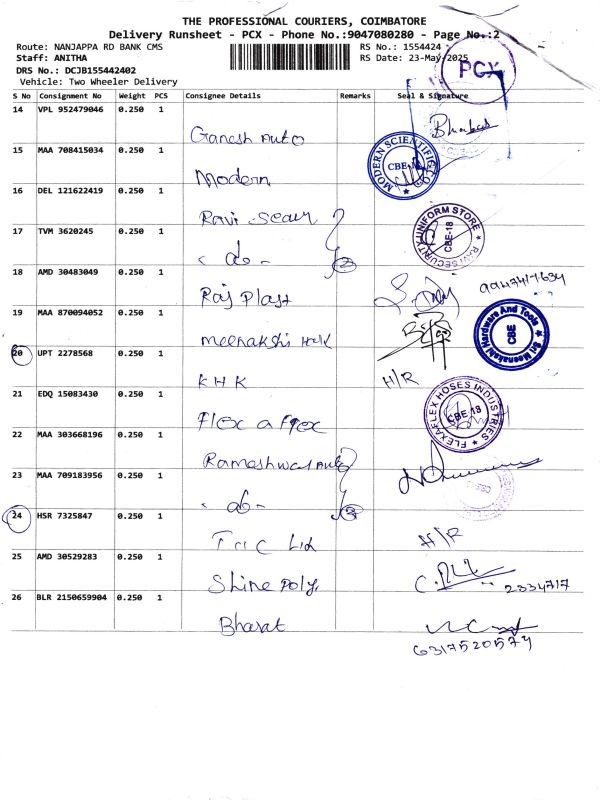 THE PROFESSIONAL COURIERS, COIMBATORE
Delivery Runsheet - PCX - Phone No.:9047080280 - Page No.:2
Route: NANJAPPA RD BANK CMS
RS No.: 1554424
Staff: ANITHA
RS Date: 23-May-2025
PCX
DRS No.: DCJB155442402
Vehicle: Two Wheeler Delivery
S No Consignment No Weight PCS Consignee Details Remarks Seal & Signature
14 VPL 952479046 0.250 1
Ganesh Auto
15 MAA 708415034 0.250 1
Modern
MODERN SCIENTIFIC CO. CBE
16 DEL 121622419 0.250 1
Ravi Secur
17 TVM 3620245 0.250 1
- do -
RAVI SECURITY UNIFORM STORE CBE-18
18 AMD 30483049 0.250 1
Raj Plast
9947417634
19 MAA 870094052 0.250 1
Meenakshi
Sri Meenakshi Hardware And Tools CBE
20 UPT 2278568 0.250 1
KHK
H/R
21 EDQ 15083430 0.250 1
Flex a Flex
FLEXAFLEX HOSES INDUSTRIES CBE-18
22 MAA 303668196 0.250 1
Rameshwar Auto
23 MAA 709183956 0.250 1
- do -
24 HSR 7325847 0.250 1
H/R
25 AMD 30529283 0.250 1
Shine Poly
2334717
26 BLR 2150659904 0.250 1
Bharat
6317520574